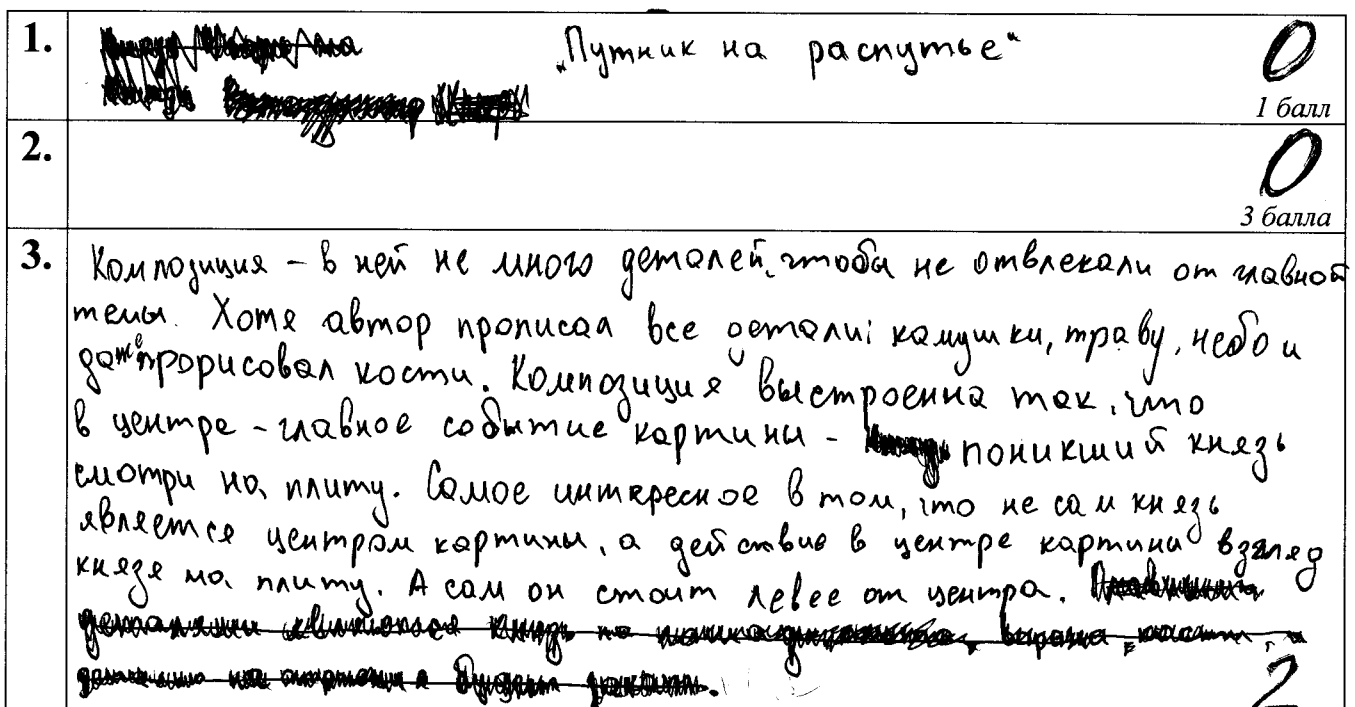 1. „Путник на распутье“ 0
1 балл
2. 0
3 балла
3. Композиция – в ней не много деталей, чтобы не отвлекали от главной
темы. Хотя автор прописал все детали: камушки, траву, небо и
даже прорисовал кости. Композиция выстроенна так, что
в центре – главное событие картины – поникший князь
смотри на плиту. Самое интересное в том, что не сам князь
является центром картины, а действие в центре картины взгляд
князя на плиту. А сам он стоит левее от центра.
2